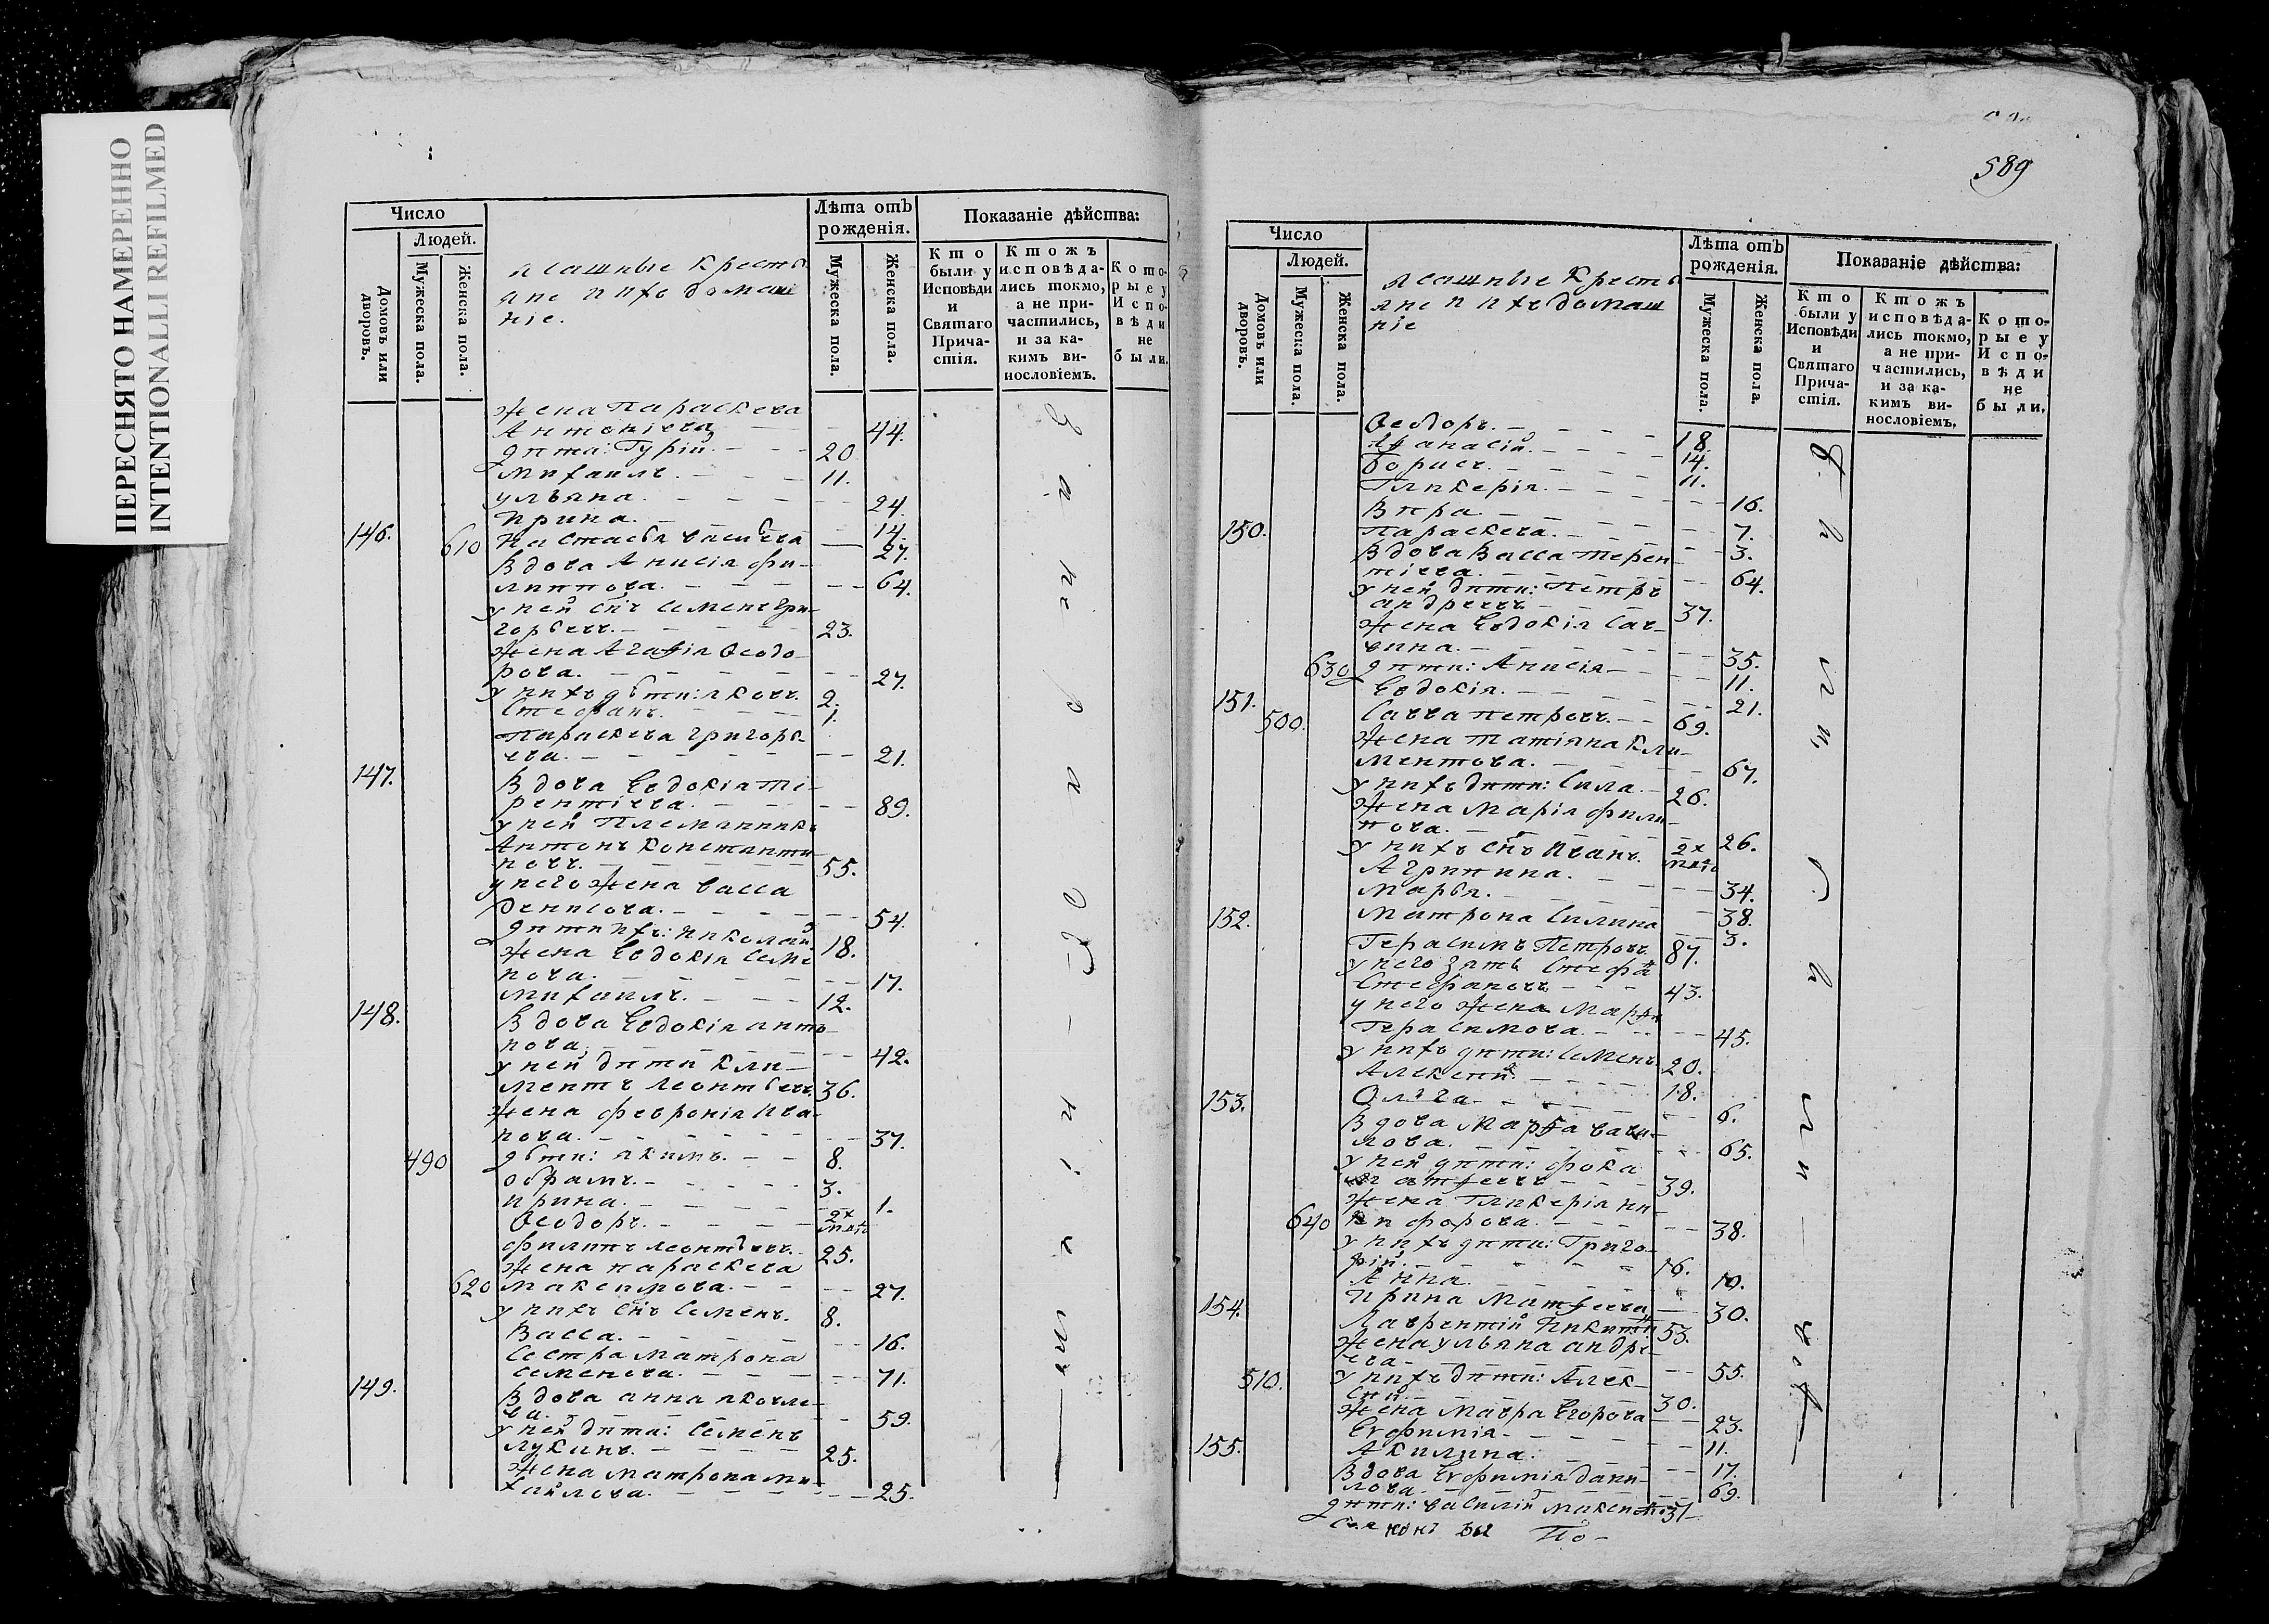 ПЕРЕСНЯТО НАМЕРЕННО
INTENTIONALLI REFILMED
Число
Людей.
Домовъ или дворовъ.
Мужеска пола.
Женска пола.
ясашные кресть
яне и ихъ домаш
ніе.
Лѣта отъ рожденія.
Мужеска пола.
Женска пола.
Показаніе дѣйства:
Кто были у Исповѣди и Святаго Причастія.
Ктожъ исповѣдались токмо, а не причастились, и за какимъ винословіемъ.
Которые у Исповѣди не были.
жена Параскева
Антоніева 44.
дѣти: Гурій 20
Михаилъ 11.
Ульяна 24.
Ирина 14.
146. 610 Настасья Васильева 27.
Вдова Анисія Фи-
липпова 64.
у ней сн҃ъ Семенъ Гри-
горьевъ 23.
жена Агафія Ѳеодо-
рова 27.
у нихъ дѣти: Яковъ 2.
Стефанъ 1.
Параскева Григорь-
ева 21.
147. Вдова Евдокія Те-
рентіева 89.
у ней Племянникъ
Антонъ Константи-
новъ 55.
у него жена Васса
Денисова 54.
дѣти ихъ: Николай 18.
жена Евдокія Семе-
нова 17.
Михаилъ 12.
148. Вдова Евдокія Анто-
нова 42.
у ней дѣти Кли-
ментъ Леонтьевъ 36.
жена Февронія Ива-
нова 37.
490 дѣти: Якимъ 8.
Обрамъ 3.
Ирина 1.
Ѳеодоръ 2х мѣс
Филипъ Леонтьевъ 25.
жена Параскева
620 Максимова 27.
у нихъ сн҃ъ Семенъ 8.
Васса 16.
Сестра Матрона
Семенова 71.
149. Вдова Анна Яковле-
ва 59.
у ней дѣти: Семенъ
Лукинъ 25.
жена Матрона Ми-
хайлова 25.
589
Число
Людей.
Домовъ или дворовъ.
Мужеска пола.
Женска пола.
ясашные кресть
яне и ихъ домаш
ніе
Лѣта отъ рожденія.
Мужеска пола.
Женска пола.
Показаніе дѣйства:
Кто были у Исповѣди и Святаго Причастія.
Ктожъ исповѣдались токмо, а не причастились, и за какимъ винословіемъ.
Которые у Исповѣди не были.
Ѳеодоръ 18.
Афанасій 14.
Борисъ 11.
Гликерія 16.
Вѣра 7.
150. Параскева 3.
Вдова Васса Терен-
тіева 64.
у ней дѣти: Петръ
Андреевъ 37.
жена Евдокія Сав-
вина 35.
630 дѣти: Анисія 11.
Евдокія 21.
151. 500. Савва Петровъ 69.
жена Татіяна Кли-
ментова 67.
у нихъ дѣти: Сила 26.
жена Марія Фили-
пова 26.
у нихъ сн҃ъ Иванъ 2х мѣс
Агрипина 34.
Марья 38.
152. Матрона Силина 3.
Герасимъ Петровъ 87.
у него зять Стефа
Стефановъ 43.
у него жена Марфа
Герасимова 45.
у нихъ дѣти: Семенъ 20.
Алексѣй 18.
153. Ольга 6.
Вдова Марфа Вави-
лова 65.
у ней дѣти: Фока
Матфеевъ 39.
жена Гликерія Ни-
640 кифорова 38.
у нихъ дѣти: Григо-
рій 16.
Анна 10.
Ирина Матфеева 30.
154. Лаврентій Никити 53.
жена Ульяна Андре-
ева 55.
510. у нихъ дѣти: Алек-
сѣй 30.
жена Мавра Егорова 23.
Евфимія 11.
155. Акилина 17.
Вдова Евфимія Дани-
лова 69.
дѣти: Василій Максимо 37
По-